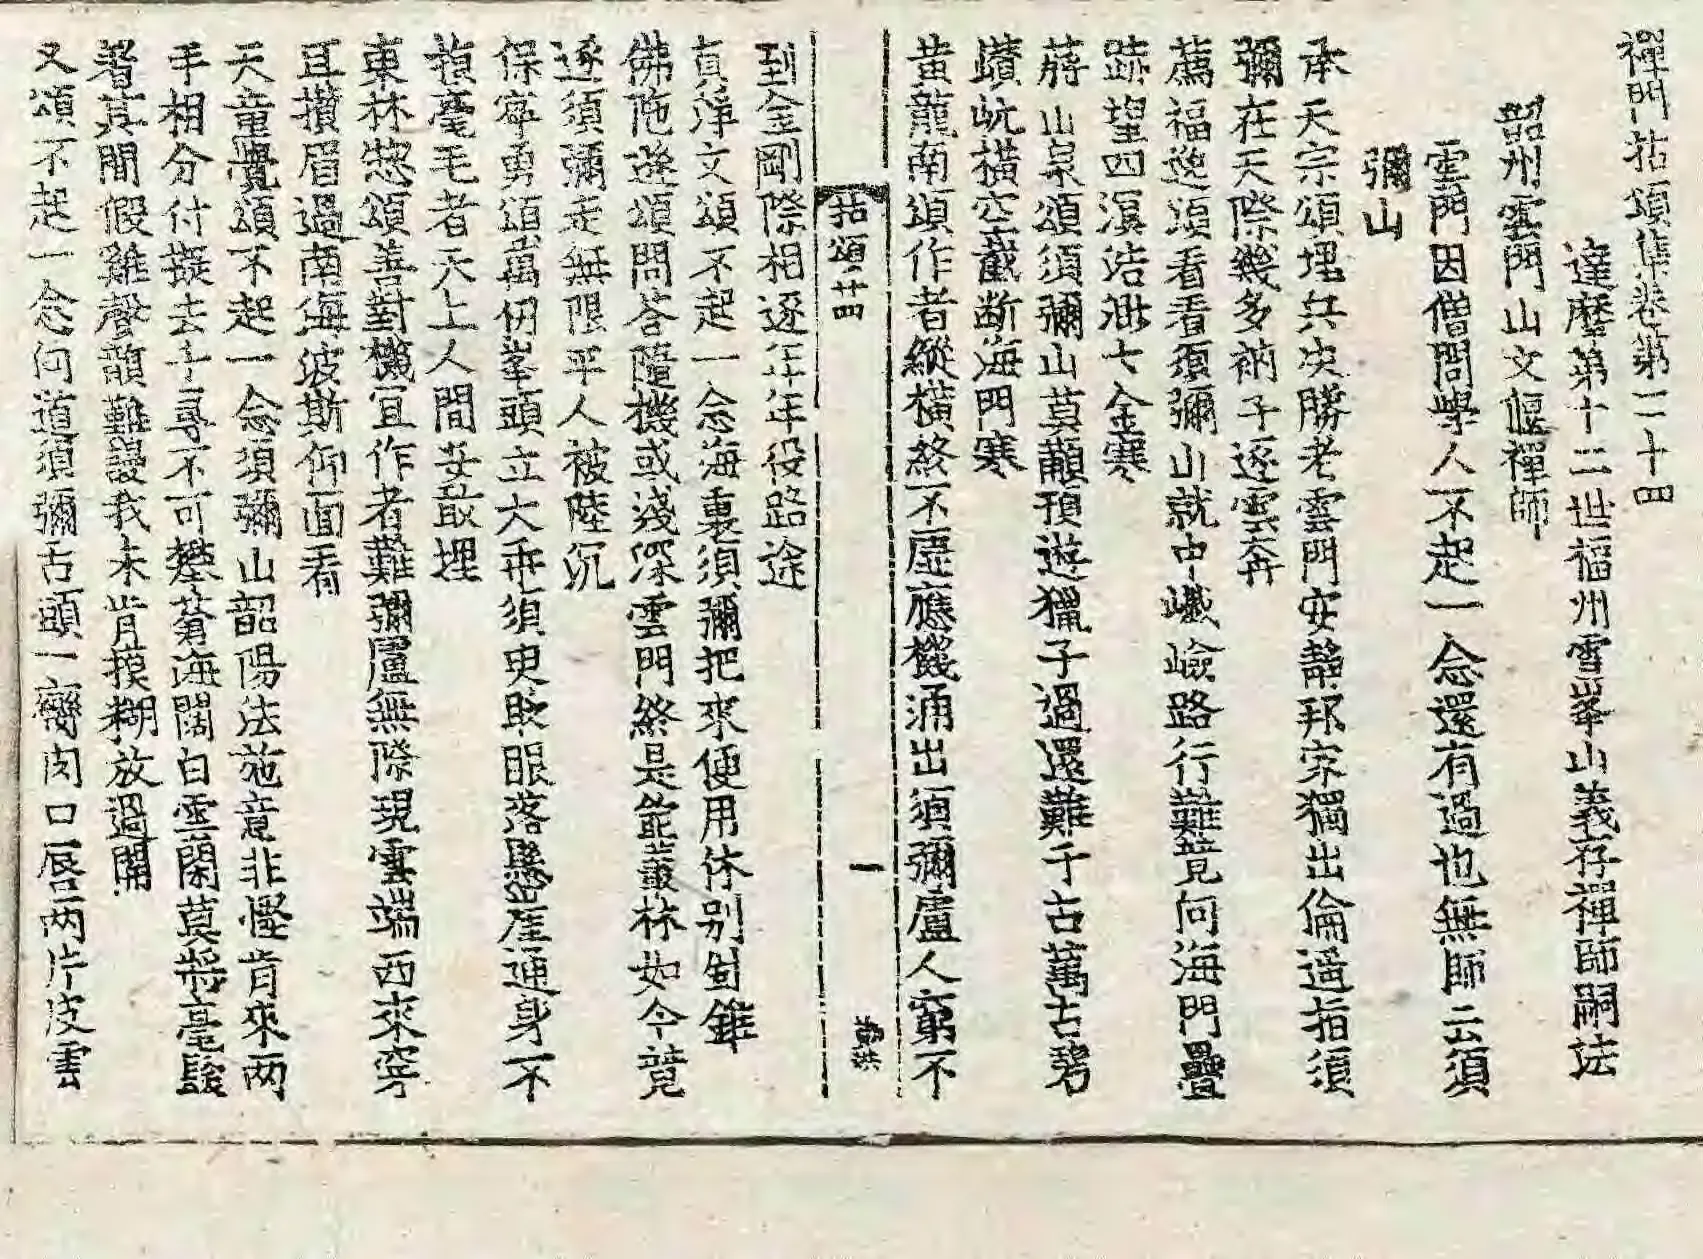 禪門拈頌集卷第二十四
達磨第十二世福州雪峯山義存禪師嗣法
韶州雲門山文偃禪師
雲門因僧問學人不起一念還有過也無師云須
彌山
承天宗頌埋兵决勝老雲門安静邦家獨出倫遥指須
彌在天際幾多衲子逐雲奔
薦福逸頌看看須彌山就中巇嶮路行難竟向海門疊
跡望四溟浩泄七金寒
蔣山泉頌須彌山莫顢頇遊獵子過還難千古萬古碧
巑岏橫空截断海門寒
黃龍南頌作者縱橫終不虛應機涌出須彌盧人窮不
拈頌廿四
一
到金剛際相逐年年役路途
真淨文頌不起一念海裏須彌把來便用休别鑽錐
佛陁遜頌問荅隨機或淺深雲門終是能叢林如今競
逐須彌走無限平人被陸沉
保寧勇頌萬仞峯頭立大乖須臾眨眼落懸崖通身不
損毫毛者天上人間安敢埋
東林惣頌善對機冝作者難彌盧無際現雲端西來穿
耳攢眉過南海波斯仰面看
天童覺頌不起一念須彌山韶陽法施意非慳肯來两
手相分付擬去千尋不可攀蒼海闊白雲閑莫將毫髮
著其間假雞聲韻難謾我未肯摸糊放過關
又頌不起一念何道須彌古頭一臠肉口唇两片皮雲